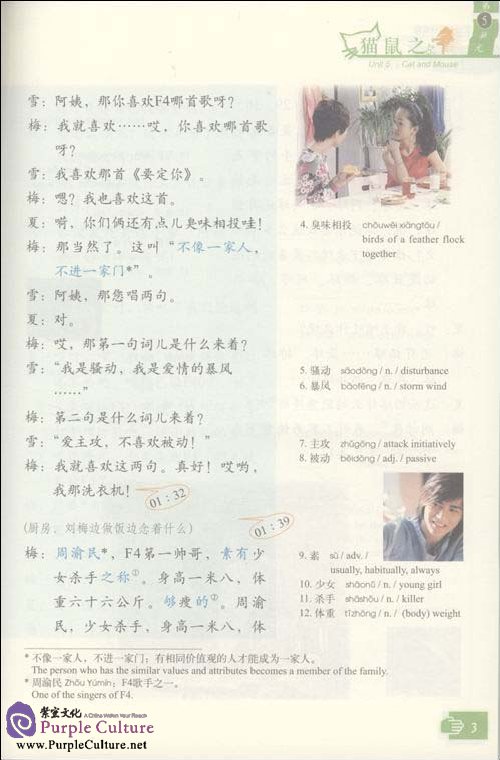 第
5
单
元
猫鼠之
Unit 5 : Cat and Mouse
雪：阿姨，那你喜欢F4哪首歌呀？
梅：我就喜欢……哎，你喜欢哪首歌
呀？
雪：我喜欢那首《要定你》。
梅：嗯？我也喜欢这首。
夏：嗬，你们俩还有点儿臭味相投哇！
梅：那当然了。这叫“不像一家人，
不进一家门*”。
雪：阿姨，那您唱两句。
夏：对。
梅：哎，那第一句词儿是什么来着？
雪：“我是骚动，我是爱情的暴风
……”
梅：第二句是什么词儿来着？
雪：“爱主攻，不喜欢被动！”
梅：我就喜欢这两句。真好！哎哟，
我那洗衣机！
01：32
(厨房，刘梅边做饭边念着什么)
01：39
梅：周渝民*，F4第一帅哥，素有少
女杀手之称①。身高一米八，体
重六十六公斤。够瘦的②。周渝
民，少女杀手，身高一米八，体
4. 臭味相投 chòuwèi xiāngtóu /
birds of a feather flock
together
5. 骚动 sāodòng / n. / disturbance
6. 暴风 bàofēng / n. / storm wind
7. 主攻 zhǔgōng / attack initiatively
8. 被动 bèidòng / adj. / passive
9. 素 sù / adv. /
usually, habitually, always
10. 少女 shàonǚ / n. / young girl
11. 杀手 shāshǒu / n. / killer
12. 体重 tǐzhòng / n. / (body) weight
* 不像一家人，不进一家门：有相同价值观的人才能成为一家人。
The person who has the similar values and attributes becomes a member of the family.
* 周渝民 Zhōu Yúmín：F4歌手之一。
One of the singers of F4.
紫室文化 A China Within Your Reach
Purple Culture
www.PurpleCulture.net
3